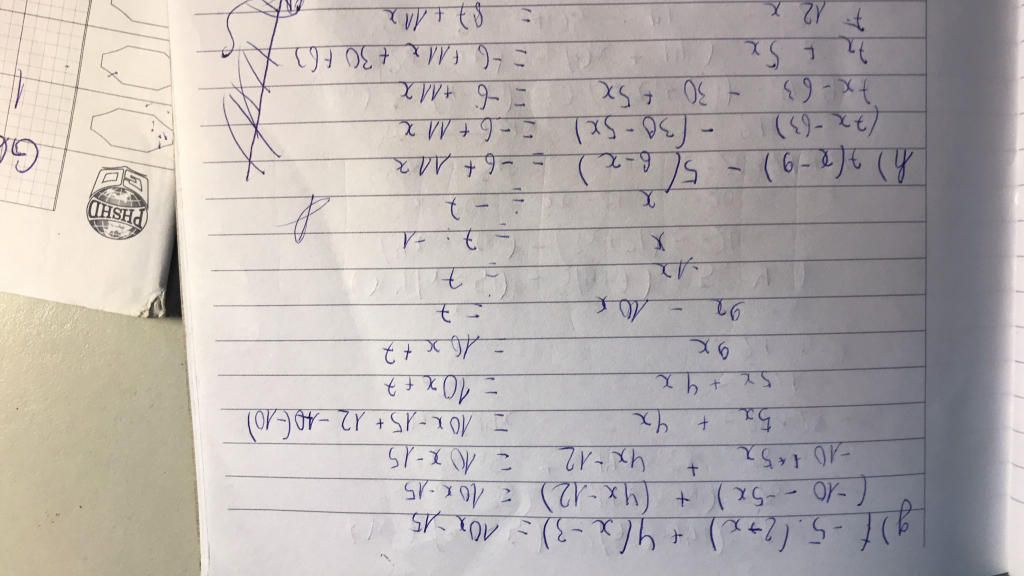 g) - 5·(2+x) + 4(x-3) = 10x-15
(-10 - 5x) + (4x-12) = 10x-15
-10 + 5x + 4x-12 = 10x-15
5x + 4x = 10x-15+12-10(-10)
5x + 4x = 10x+7
9x = 10x+7
9x - 10x = 7
-1x = 7
x = 7 : -1
x = -7
h) 7(x-9) - 5(6-x) = -6+11x
(7x-63) - (30-5x) = -6+11x
7x-63 - 30+5x = -6+11x
7x + 5x = -6+11x+30+63
12x = 87+11x
PHSHD